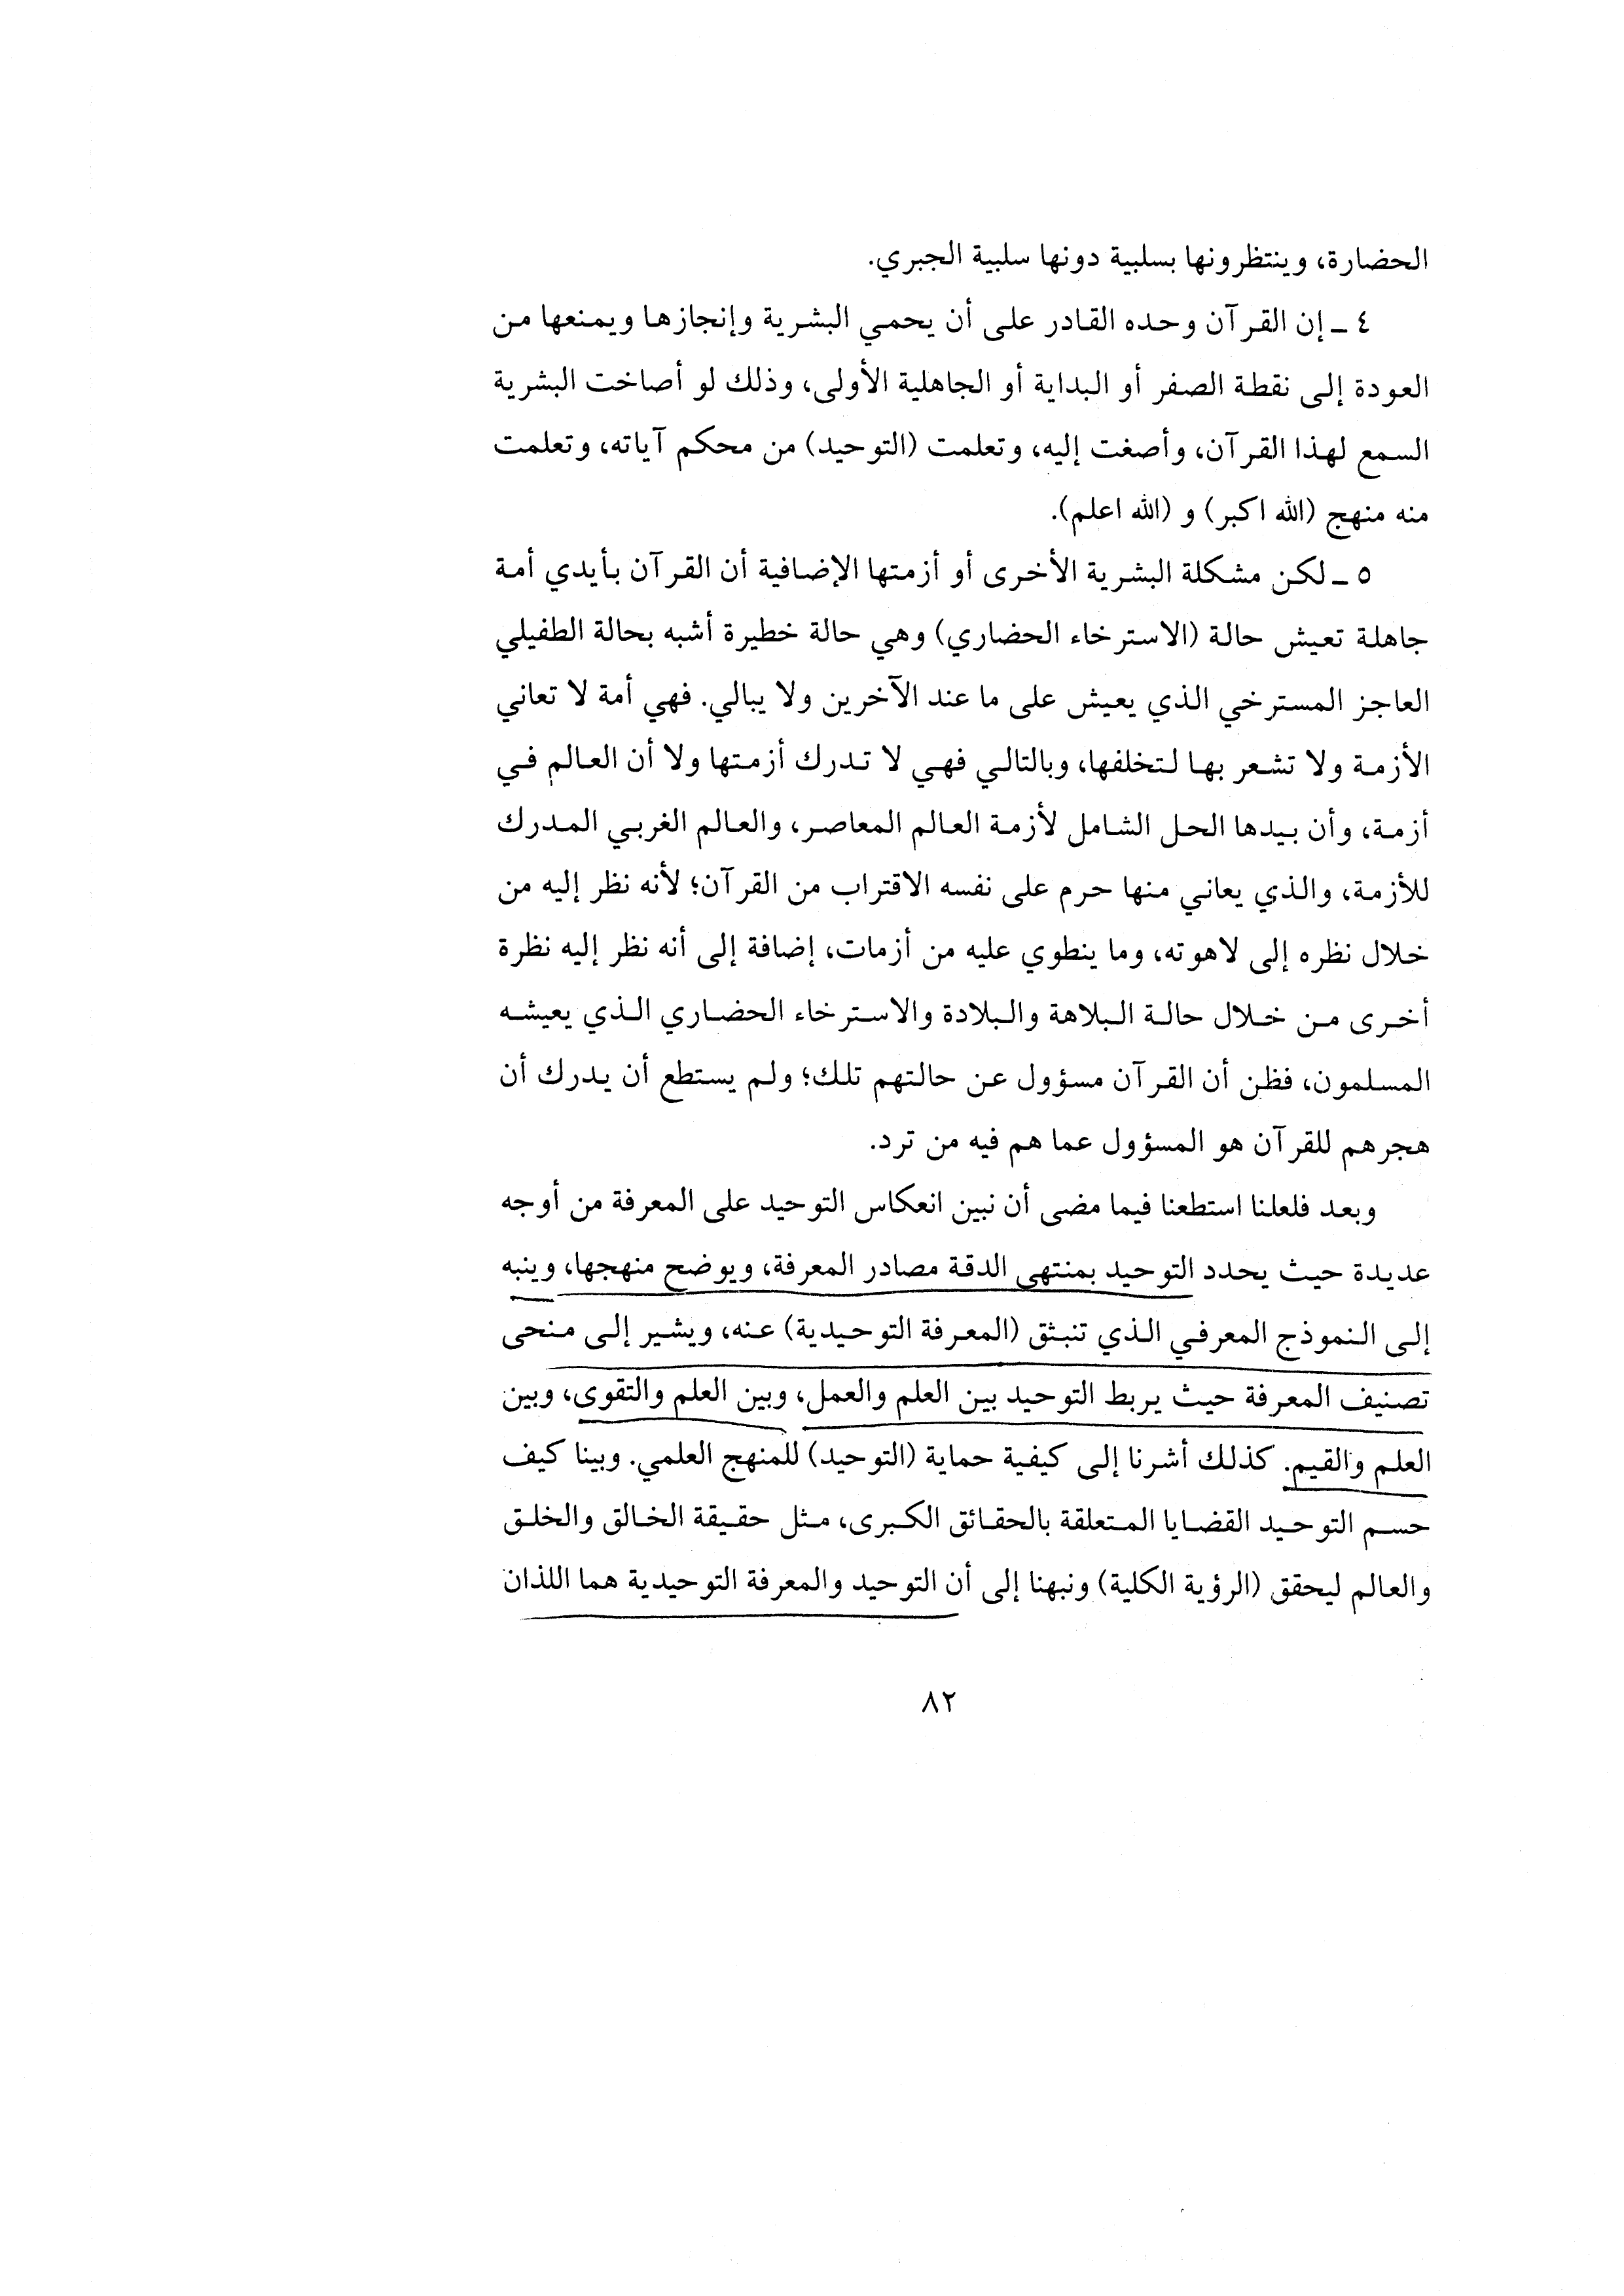 الحضارة، وينتظرونها بسلبية دونها سلبية الجبري.
٤ ـ إن القرآن وحده القادر على أن يحمي البشرية وإنجازها ويمنعها من
العودة إلى نقطة الصفر أو البداية أو الجاهلية الأولى، وذلك لو أصاخت البشرية
السمع لهذا القرآن، وأصغت إليه، وتعلمت (التوحيد) من محكم آياته، وتعلمت
منه منهج (الله اكبر) و (الله اعلم).
٥ ـ لكن مشكلة البشرية الأخرى أو أزمتها الإضافية أن القرآن بأيدي أمة
جاهلة تعيش حالة (الاسترخاء الحضاري) وهي حالة خطيرة أشبه بحالة الطفيلي
العاجز المسترخي الذي يعيش على ما عند الآخرين ولا يبالي. فهي أمة لا تعاني
الأزمة ولا تشعر بها لتخلفها، وبالتالي فهي لا تدرك أزمتها ولا أن العالم في
أزمة، وأن بيدها الحل الشامل لأزمة العالم المعاصر، والعالم الغربي المدرك
للأزمة، والذي يعاني منها حرم على نفسه الاقتراب من القرآن؛ لأنه نظر إليه من
خلال نظره إلى لاهوته، وما ينطوي عليه من أزمات، إضافة إلى أنه نظر إليه نظرة
أخرى من خلال حالة البلاهة والبلادة والاسترخاء الحضاري الذي يعيشه
المسلمون، فظن أن القرآن مسؤول عن حالتهم تلك؛ ولم يستطع أن يدرك أن
هجرهم للقرآن هو المسؤول عما هم فيه من ترد.
وبعد فلعلنا استطعنا فيما مضى أن نبين انعكاس التوحيد على المعرفة من أوجه
عديدة حيث يحدد التوحيد بمنتهى الدقة مصادر المعرفة، ويوضح منهجها، وينبه
إلى النموذج المعرفي الذي تنبثق (المعرفة التوحيدية) عنه، ويشير إلى منحى
تصنيف المعرفة حيث يربط التوحيد بين العلم والعمل، وبين العلم والتقوى، وبين
العلم والقيم. كذلك أشرنا إلى كيفية حماية (التوحيد) للمنهج العلمي. وبينا كيف
حسم التوحيد القضايا المتعلقة بالحقائق الكبرى، مثل حقيقة الخالق والخلق
والعالم ليحقق (الرؤية الكلية) ونبهنا إلى أن التوحيد والمعرفة التوحيدية هما اللذان
٨٢